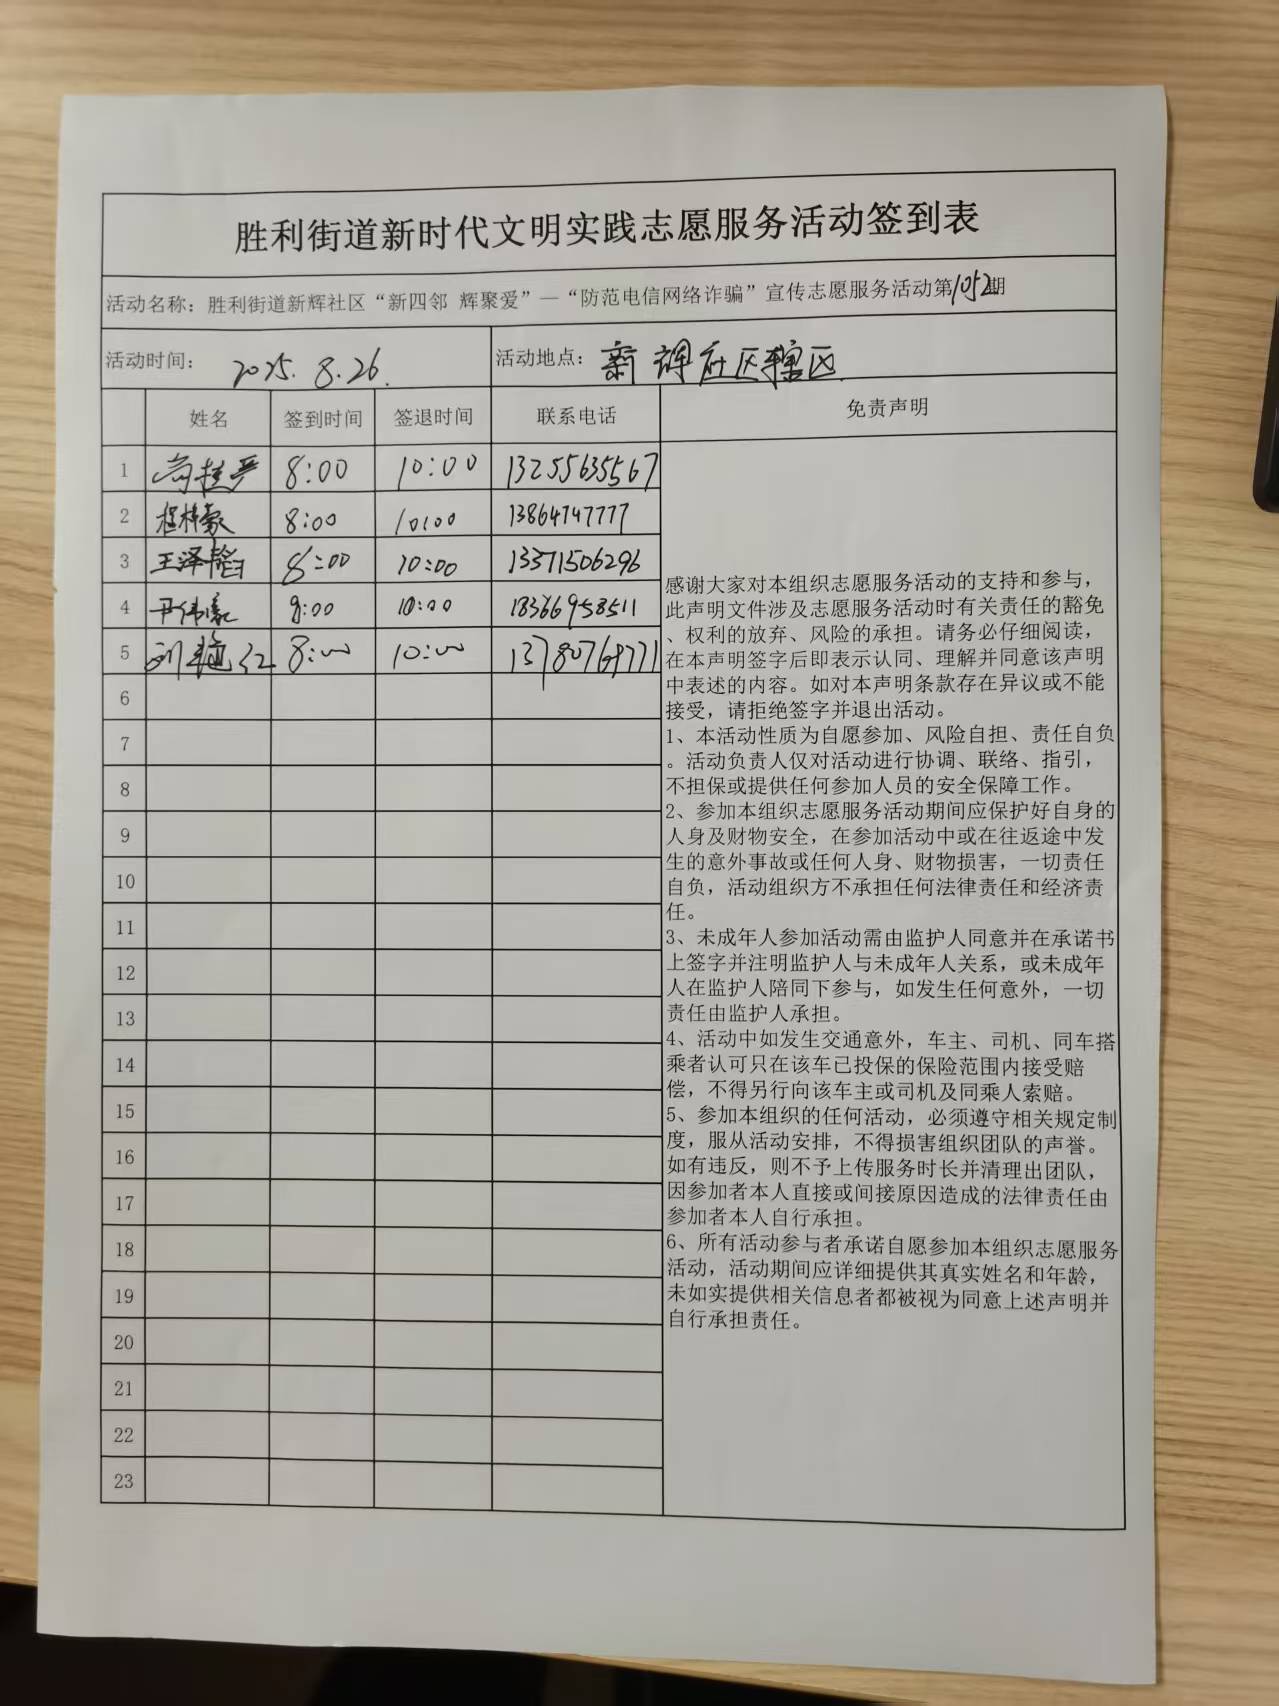 胜利街道新时代文明实践志愿服务活动签到表
活动名称：胜利街道新辉社区“新四邻 辉聚爱”—“防范电信网络诈骗”宣传志愿服务活动第1052期
活动时间： 2025.8.26. 活动地点：新辉社区辖区
姓名 签到时间 签退时间 联系电话 免责声明
1 8:00 10:00 13255635567
2 8:00 10:00 13864747777
3 王泽韬 8:00 10:00 13371506296
4 尹伟豪 8:00 10:00 18366958511
5 刘艳红 8:00 10:00
6
7
8
9
10
11
12
13
14
15
16
17
18
19
20
21
22
23
感谢大家对本组织志愿服务活动的支持和参与，
此声明文件涉及志愿服务活动时有关责任的豁免
、权利的放弃、风险的承担。请务必仔细阅读，
在本声明签字后即表示认同、理解并同意该声明
中表述的内容。如对本声明条款存在异议或不能
接受，请拒绝签字并退出活动。
1、本活动性质为自愿参加、风险自担、责任自负
。活动负责人仅对活动进行协调、联络、指引，
不担保或提供任何参加人员的安全保障工作。
2、参加本组织志愿服务活动期间应保护好自身的
人身及财物安全，在参加活动中或在往返途中发
生的意外事故或任何人身、财物损害，一切责任
自负，活动组织方不承担任何法律责任和经济责
任。
3、未成年人参加活动需由监护人同意并在承诺书
上签字并注明监护人与未成年人关系，或未成年
人在监护人陪同下参与，如发生任何意外，一切
责任由监护人承担。
4、活动中如发生交通意外，车主、司机、同车搭
乘者认可只在该车已投保的保险范围内接受赔
偿，不得另行向该车主或司机及同乘人索赔。
5、参加本组织的任何活动，必须遵守相关规定制
度，服从活动安排，不得损害组织团队的声誉。
如有违反，则不予上传服务时长并清理出团队，
因参加者本人直接或间接原因造成的法律责任由
参加者本人自行承担。
6、所有活动参与者承诺自愿参加本组织志愿服务
活动，活动期间应详细提供其真实姓名和年龄，
未如实提供相关信息者都被视为同意上述声明并
自行承担责任。